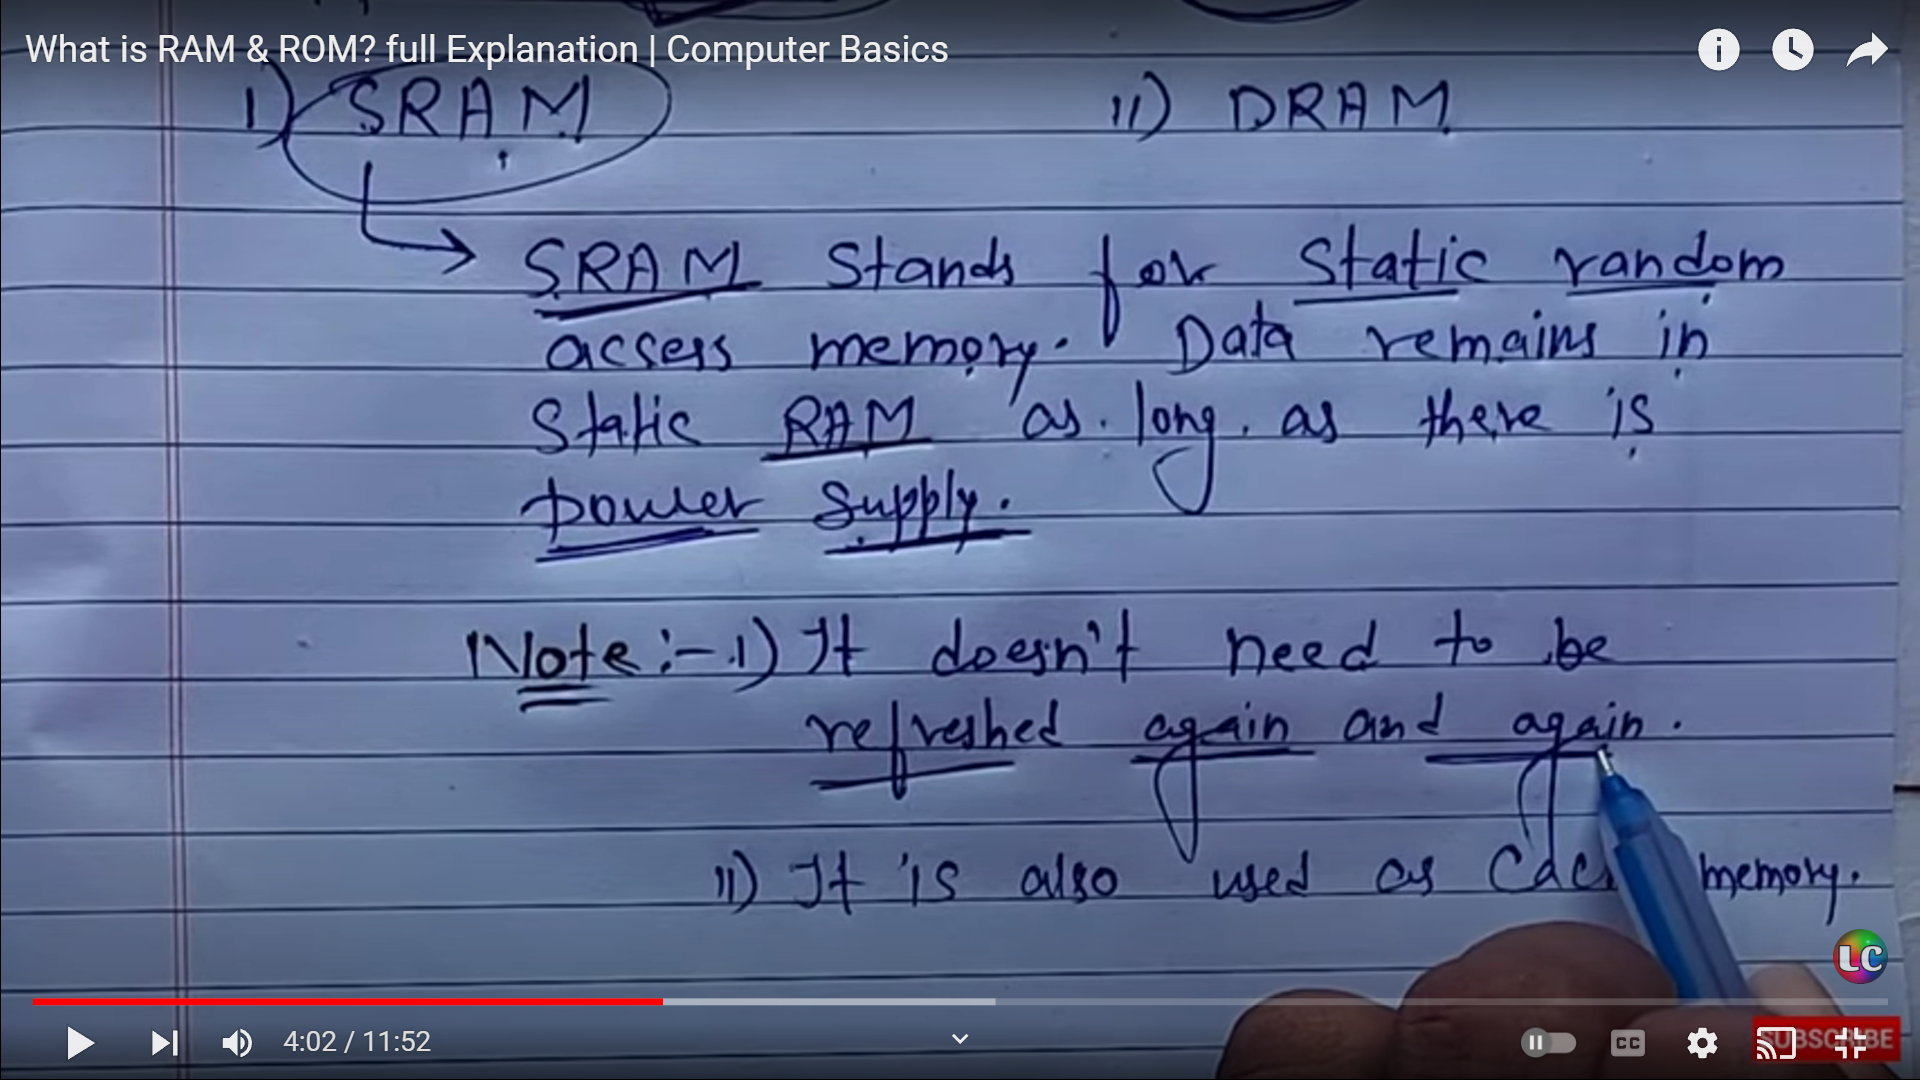 What is RAM & ROM? full Explanation | Computer Basics
I) SRAM II) DRAM
SRAM stands for static random
access memory. Data remains in
static RAM as long as there is
power supply.
Note :- 1) It doesn't need to be
refreshed again and again.
II) It is also used as memory.
LC
4:02 / 11:52
CC
SUBSCRIBE